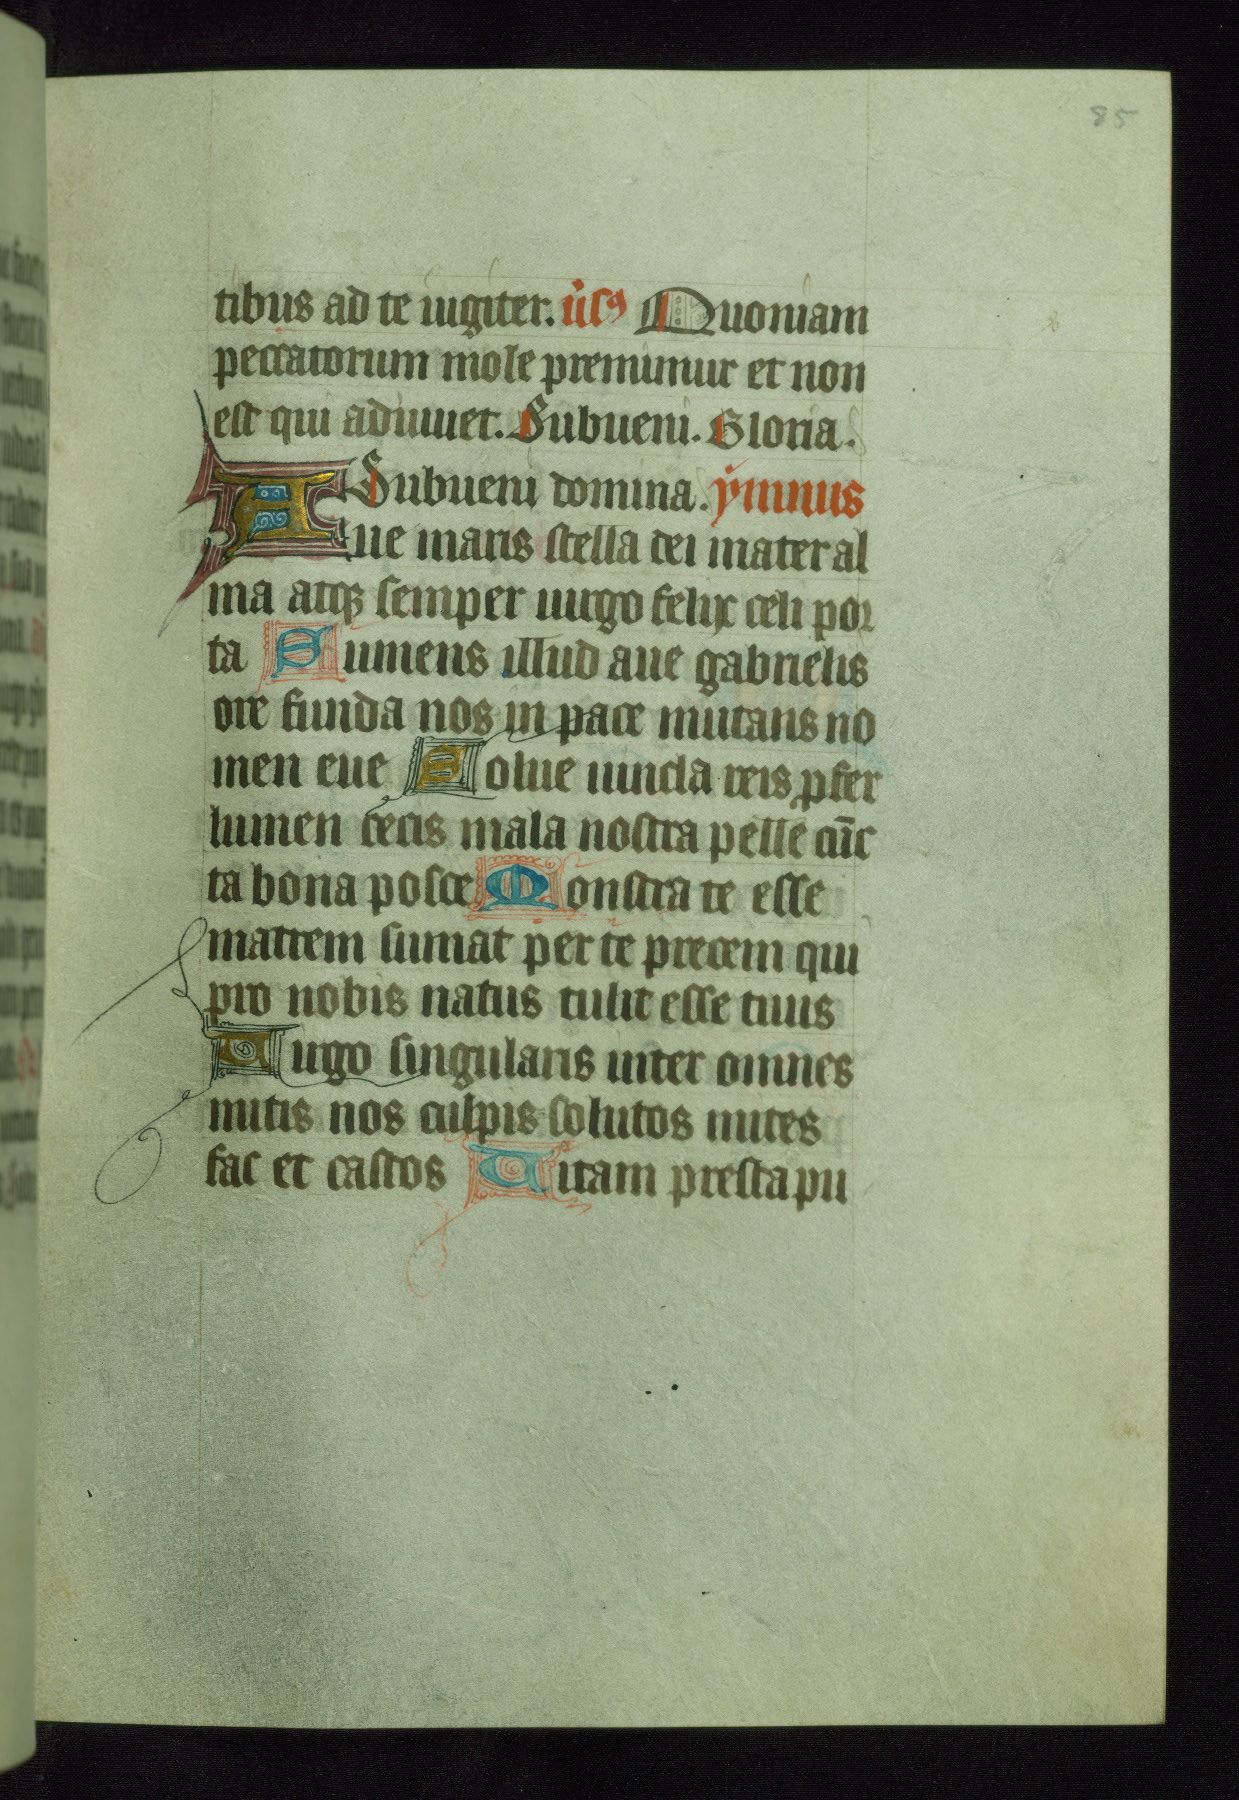 85
tibus ad te iugiter. v̓sꝰ Quoniam
peccatorum mole premimur et non
est qui adiuuet. Subueni. Gloria.
Subueni domina. ẏmnus
Aue maris stella dei mater al
ma atqꝫ semper uirgo felix celi por
ta Sumens illud aue gabrielis
ore funda nos in pace mutans no
men eue Solue uincla reis ꝓfer
lumen cecis mala nostra pelle cūc
ta bona posce Monstra te esse
matrem sumat per te precem qui
pro nobis natus tulit esse tuus
Uirgo singularis inter omnes
mitis nos culpis solutos mites
fac et castos Uitam presta pu